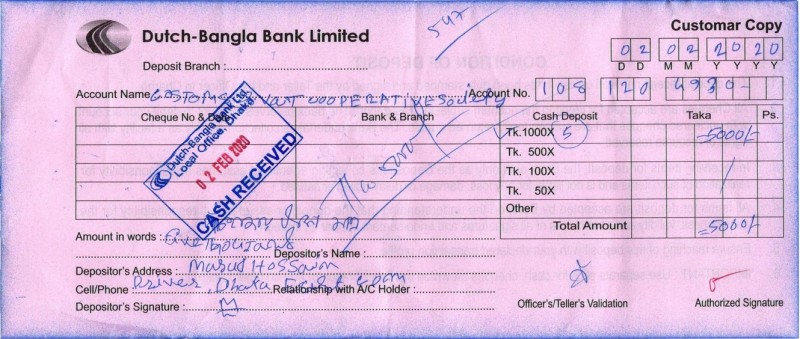 547
Dutch-Bangla Bank Limited
Customar Copy
Deposit Branch :
02 02 2020
D D M M Y Y Y Y
Account Name COSTOMS VAT COOPERATIVE Society Account No. 108 120 4930-
Cheque No & Date Bank & Branch Cash Deposit Taka Ps.
Tk.1000X 5 5000/-
Tk. 500X
Tk. 100X
Tk. 50X
Other
Total Amount =5000/-
Dutch-Bangla Bank Ltd.
Local Office, Dhaka.
02 FEB 2020
CASH RECEIVED
Amount in words : Five Thousand
Depositor's Name :
Depositor's Address : Masud Hossain
Cell/Phone Driver, Dhaka Relationship with A/C Holder :
Depositor's Signature :
Officer's/Teller's Validation
Authorized Signature